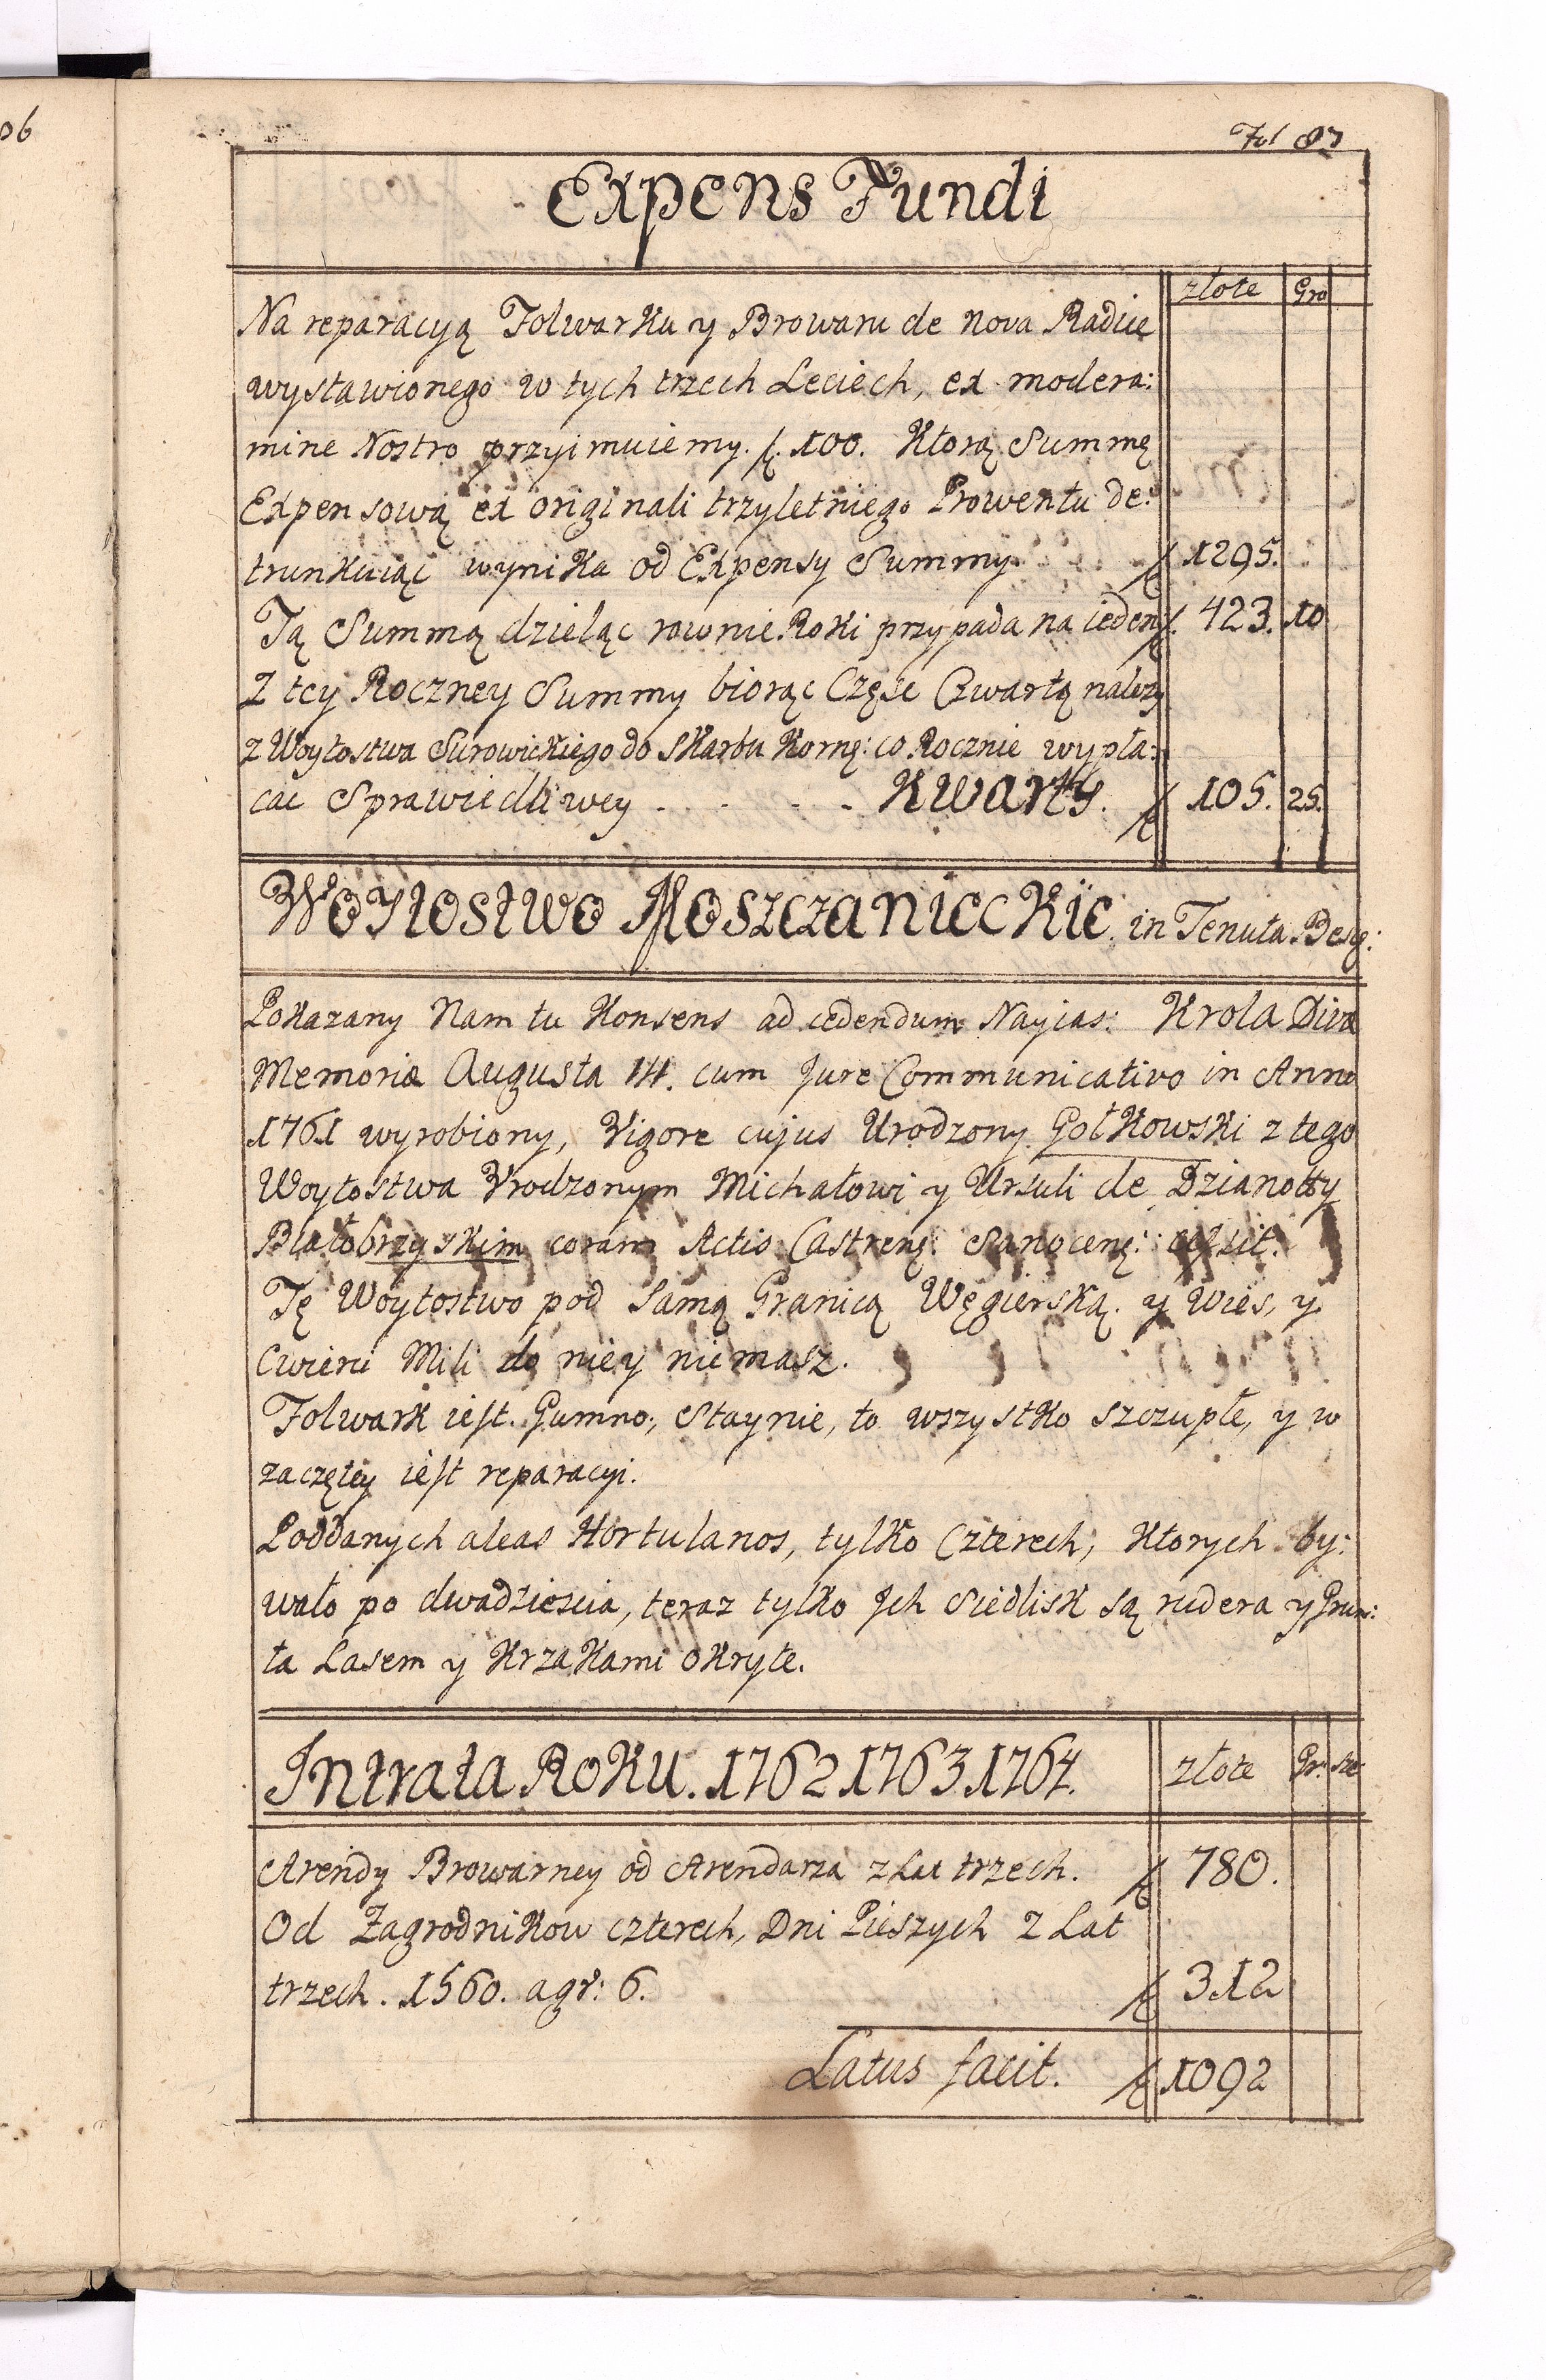 06
Fol 87
Expens Fundi
złote Gro
Na reparacyą Folwarku y Browaru de nova Radice
wystawionego w tych trzech Leciech, ex modera:
mine Nostro przyimuiemy. f. 100. Ktorą Summę
Expensową ex originali trzyletniego Prowentu de:
trunkuiąc wynika od Expensy Summy f 1295.
Tą Summą dzieląc rownie Roki przypada na ieden f. 423. 10
Z tey Roczney Summy biorąc Częsc Czwartą należy
z Woytostwa Surowickiego do Skarbu Kornę: co Rocznie wypła:
cac Sprawiedliwey - - - - Kwarty. f 105. 25.
Woytostwo Moszczanieckie in Tenuta Besg:
Pokazany Nam tu Konsens ad cedendum Nayias: Krola Divæ
Memoriæ Augusta III. cum Jure Communicativo in Anno
1761 wyrobiony, Vigore cujus Urodzony Gołkowski z tego
Woytostwa Vrodzonym Michałowi y Ursuli de Dzianotty
Białobrzyskim coram Actis Castrenę: Sanocenę: cessit.
Tę Woytostwo pod Samą Granicą Węgierską. y Wies, y
Cwierci Mili do niey niemasz.
Folwark iest. Gumno, Staynie, to wszystko szczupłe, y w
zaczętey iest reparacyi.
Poddanych aleas Hortulanos, tylko Czterech, Ktorych by:
wało po dwadziescia, teraz tylko Jch Siedlisk są rudera y Grun:
ta Lasem y Krzakami okryte.
Jntrata Roku. 1762 1763 1764. złote Gr. sze
Arendy Browarney od Arendarza z Lat trzech. f 780.
Od Zagrodnikow czterech, Dni Pieszych z Lat
trzech. 1560. a gr: 6. f 312
Latus facit. f 1092